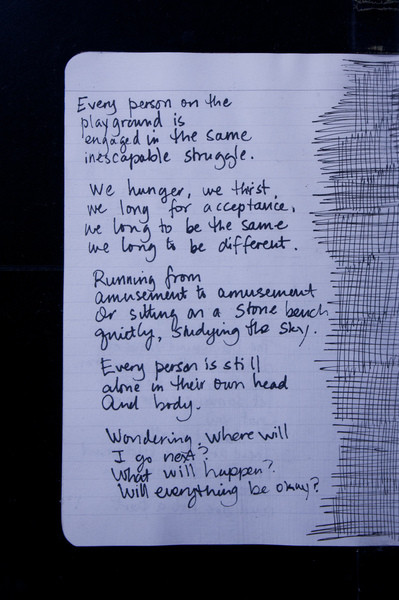 Every person on the
playground is
engaged in the same
inescapable struggle.
We hunger, we thirst,
we long for acceptance,
we long to be the same
we long to be different.
Running from
amusement to amusement
Or sitting on a stone bench
quietly, studying the sky.
Every person is still
alone in their own head
And body.
Wondering: where will
I go next?
What will happen?
Will everything be okay?